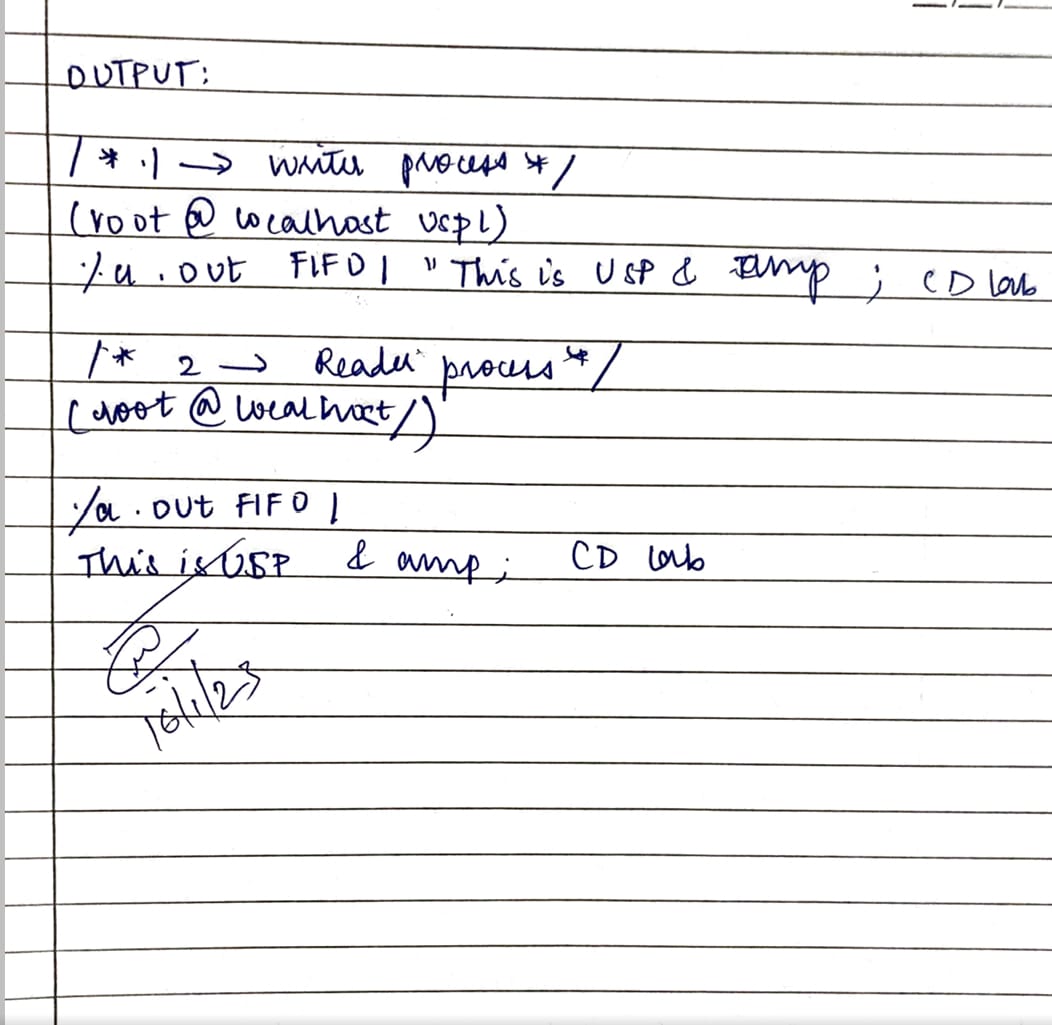 OUTPUT:
/* .1 → writer process */
(root @ localhost usp1)
./a.out FIFO1 " This is USP & amp ; CD lab
/* 2 → Reader process */
(root @ localhost/)
./a.out FIFO 1
This is USP & amp; CD lab
16/1/23